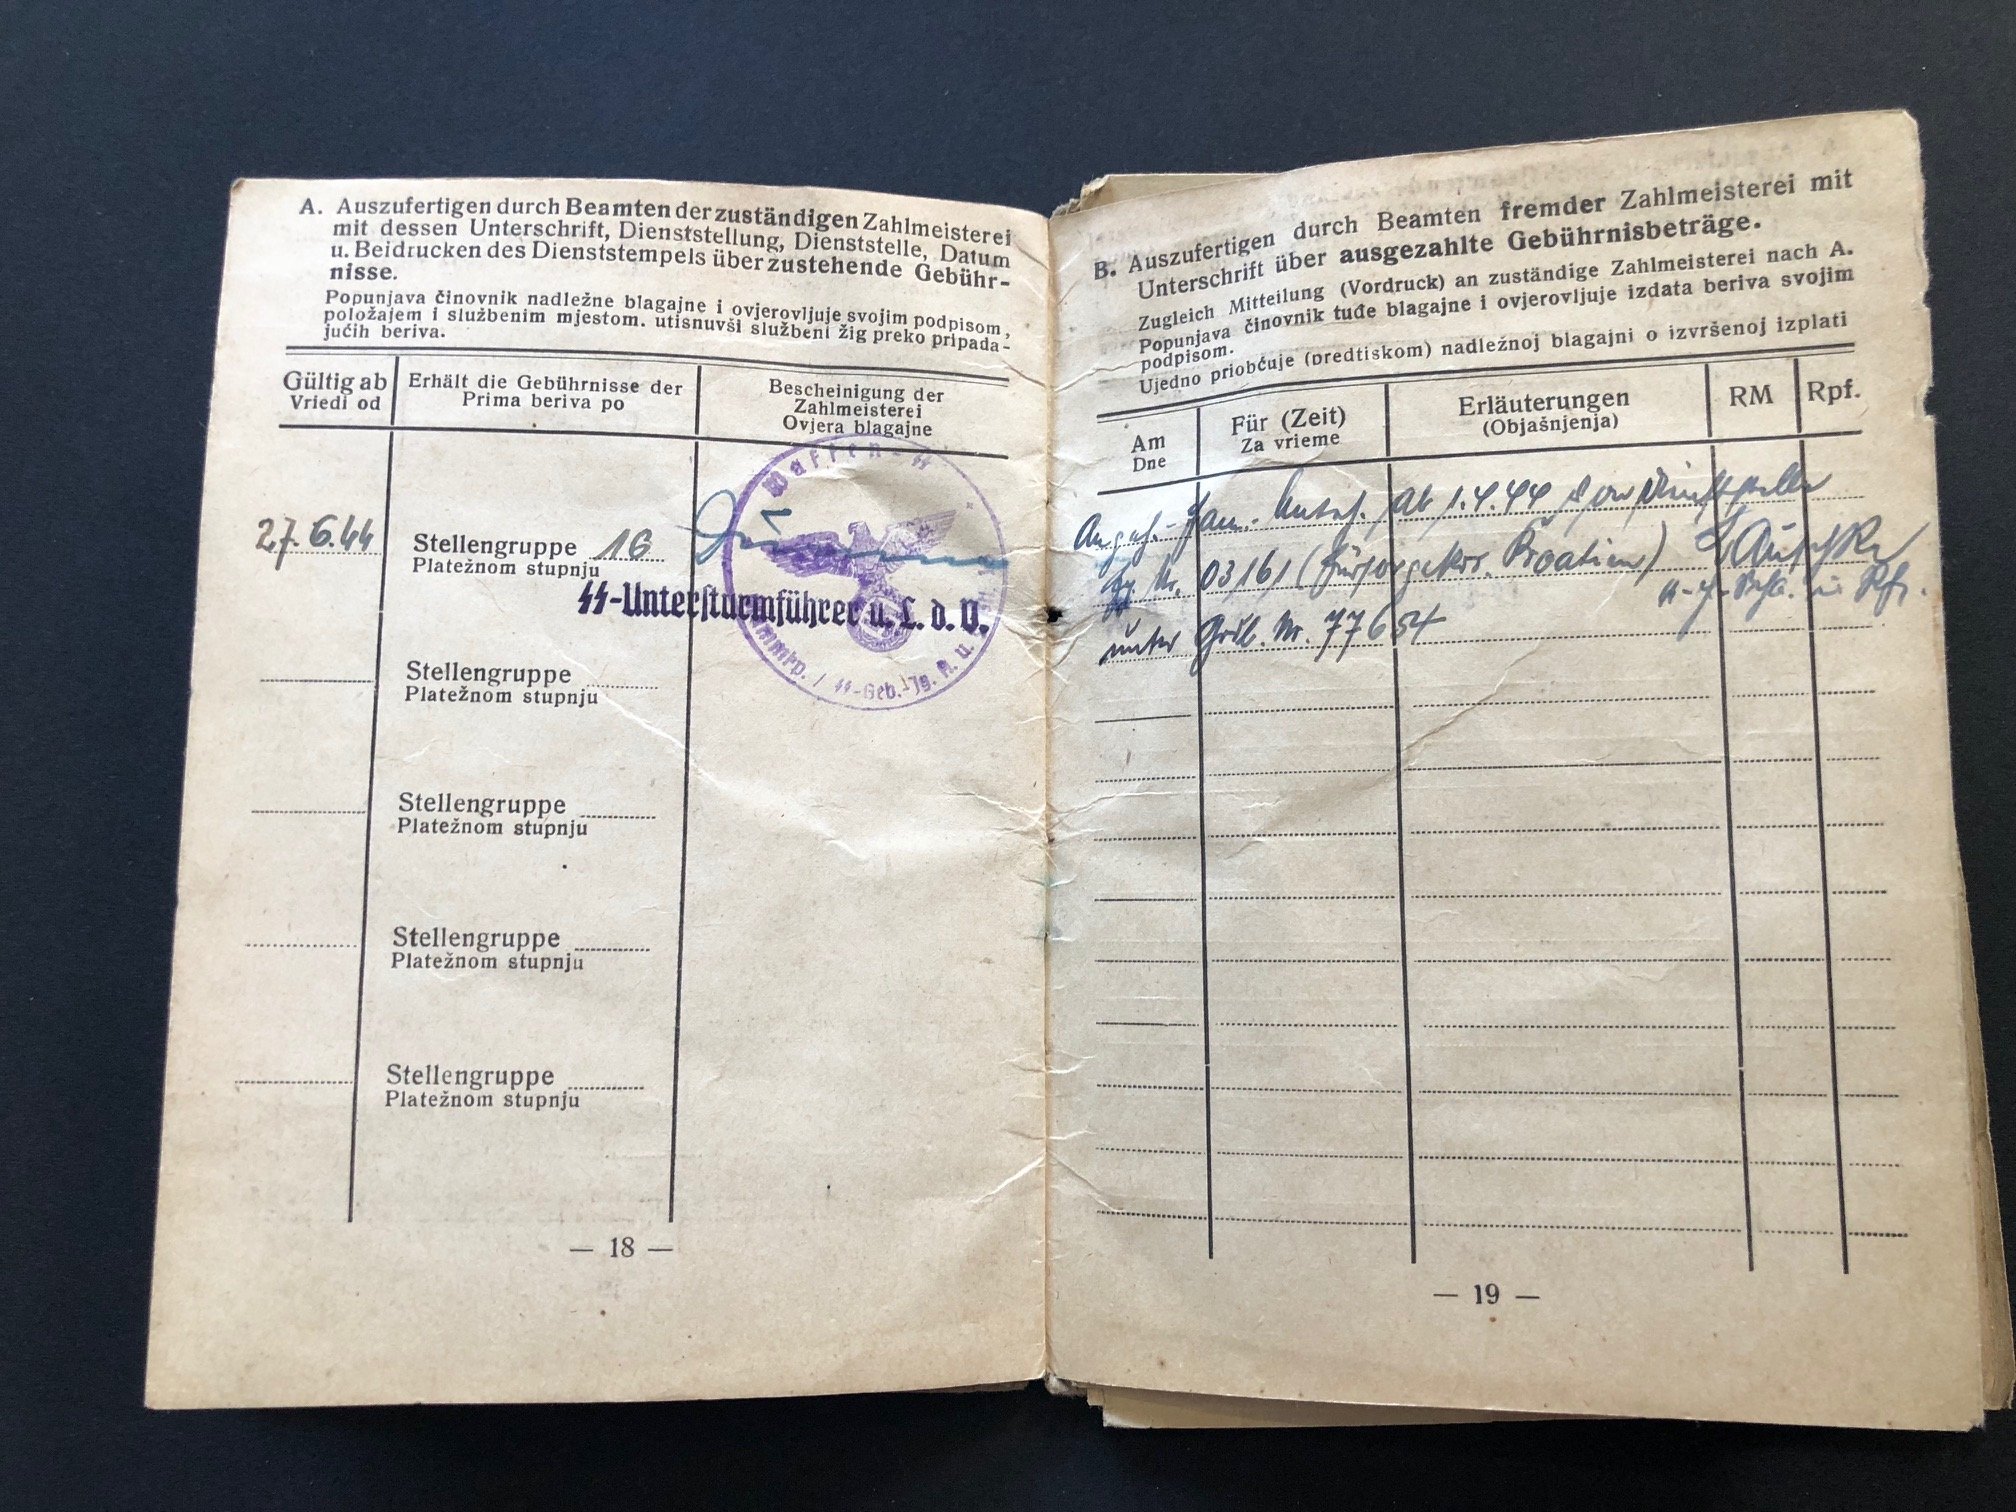 A. Auszufertigen durch Beamten der zuständigen Zahlmeisterei
mit dessen Unterschrift, Dienststellung, Dienststelle, Datum
u. Beidrucken des Dienststempels über zustehende Gebühr-
nisse.
Popunjava činovnik nadležne blagajne i ovjerovljuje svojim podpisom,
položajem i službenim mjestom. utisnuvši službeni žig preko pripada-
jućih beriva.
Gültig ab
Vriedi od
Erhält die Gebührnisse der
Prima beriva po
Bescheinigung der
Zahlmeisterei
Ovjera blagajne
Waffen-SS
27.6.44
Stellengruppe 16
Platežnom stupnju
SS-Untersturmführer u. L. d. V.
SS-Geb.-Jg. A. u.
Stellengruppe
Platežnom stupnju
Stellengruppe
Platežnom stupnju
Stellengruppe
Platežnom stupnju
Stellengruppe
Platežnom stupnju
— 18 —
B. Auszufertigen durch Beamten fremder Zahlmeisterei mit
Unterschrift über ausgezahlte Gebührnisbeträge.
Zugleich Mitteilung (Vordruck) an zuständige Zahlmeisterei nach A.
Popunjava činovnik tuđe blagajne i ovjerovljuje izdata beriva svojim
podpisom.
Ujedno priobćuje (predtiskom) nadležnoj blagajni o izvršenoj izplati
Am
Dne
Für (Zeit)
Za vrieme
Erläuterungen
(Objašnjenja)
RM
Rpf.
Ab 1.4.44 Dienststelle
Nr. 03161 (Fürsorgekdr. Kroatien)
unter Nr. 77654
— 19 —